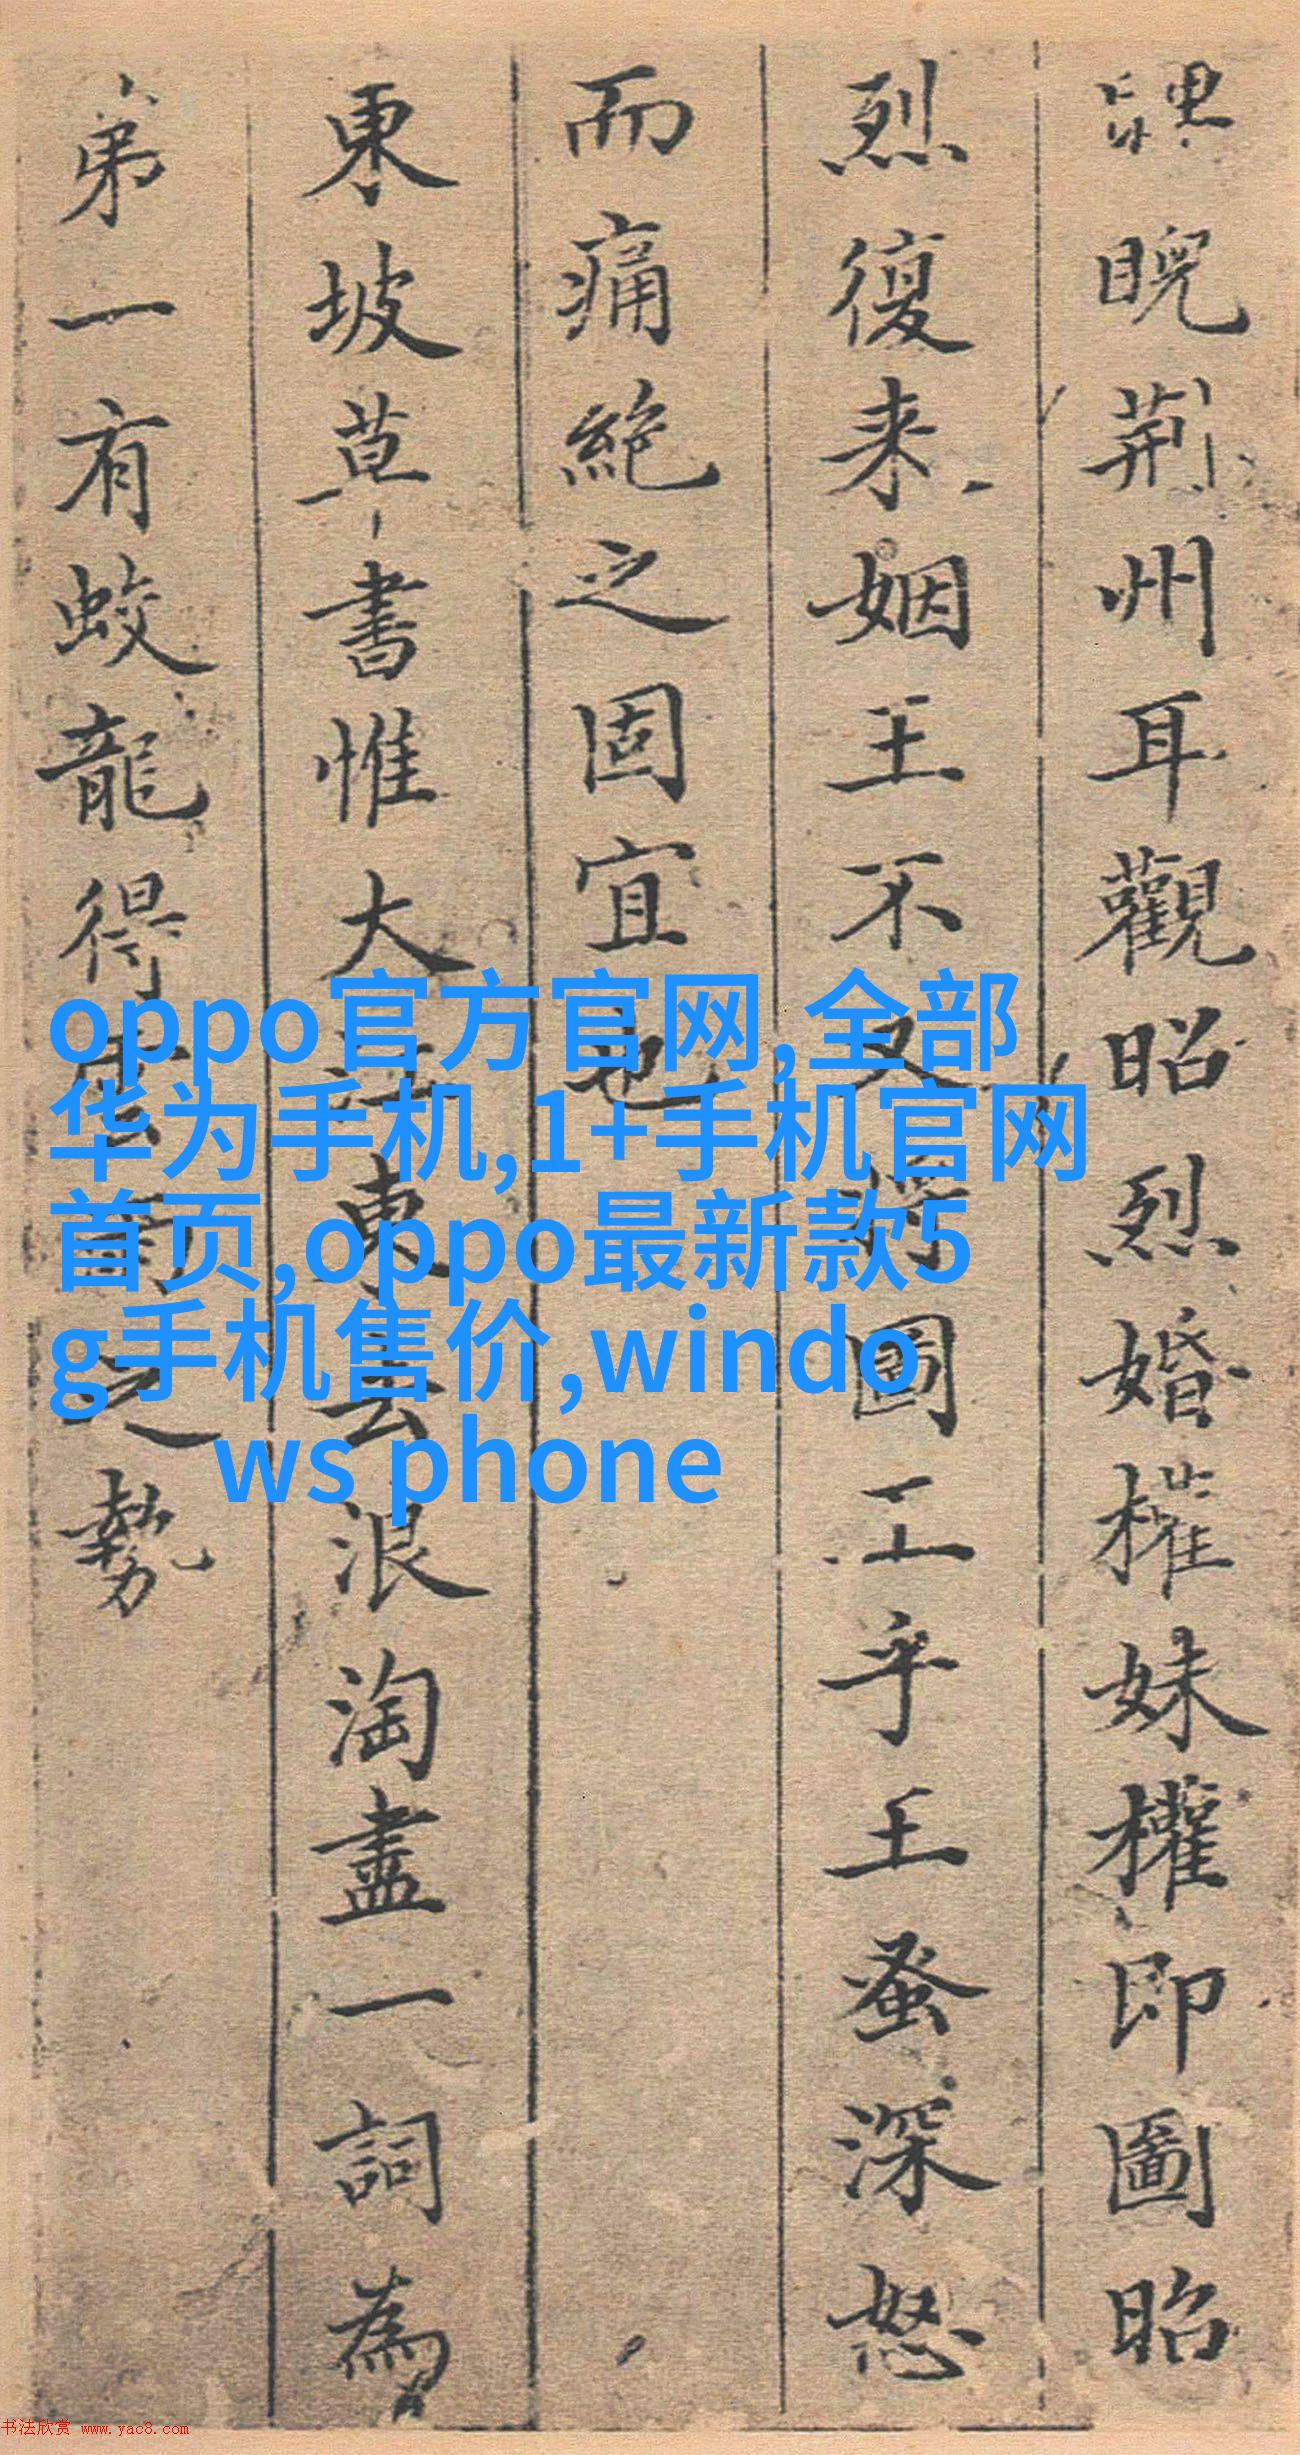 睥睨荆州耳觀昭烈婚權妹權即圖昭
烈復来姻王不又將圖工乎王蚤深怒
而痛絶之固宜也
東坡草書惟大江東去浪淘盡一詞為
弟一有蛟龍得雲雨之勢
oppo官方官网,全部
华为手机,1+手机官网
首页,oppo最新款5
g手机售价,windo
ws phone
书法欣赏 www.yac8.com